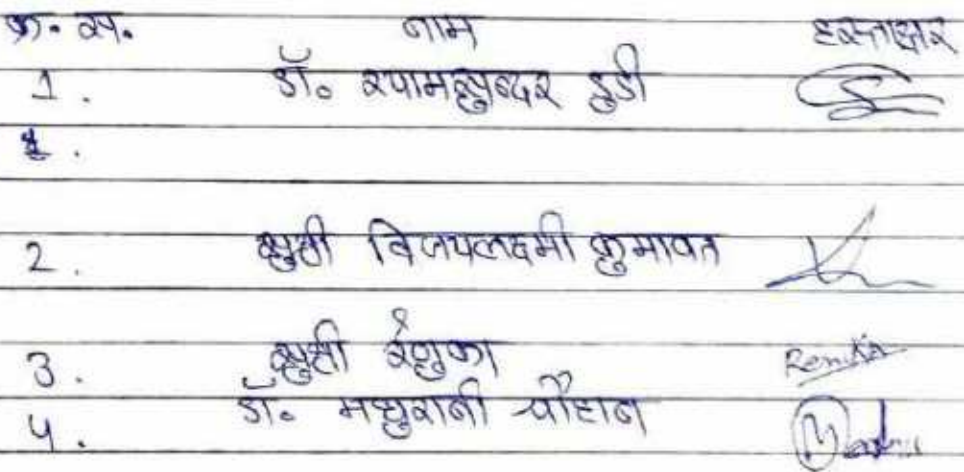 क्र. स. नाम हस्ताक्षर
1. डॉ. श्यामसुन्दर डुडी
2. सुश्री विजयलक्ष्मी कुमावत
3. सुश्री रेणुका Renuka
4. डॉ. मधुरानी चौहान